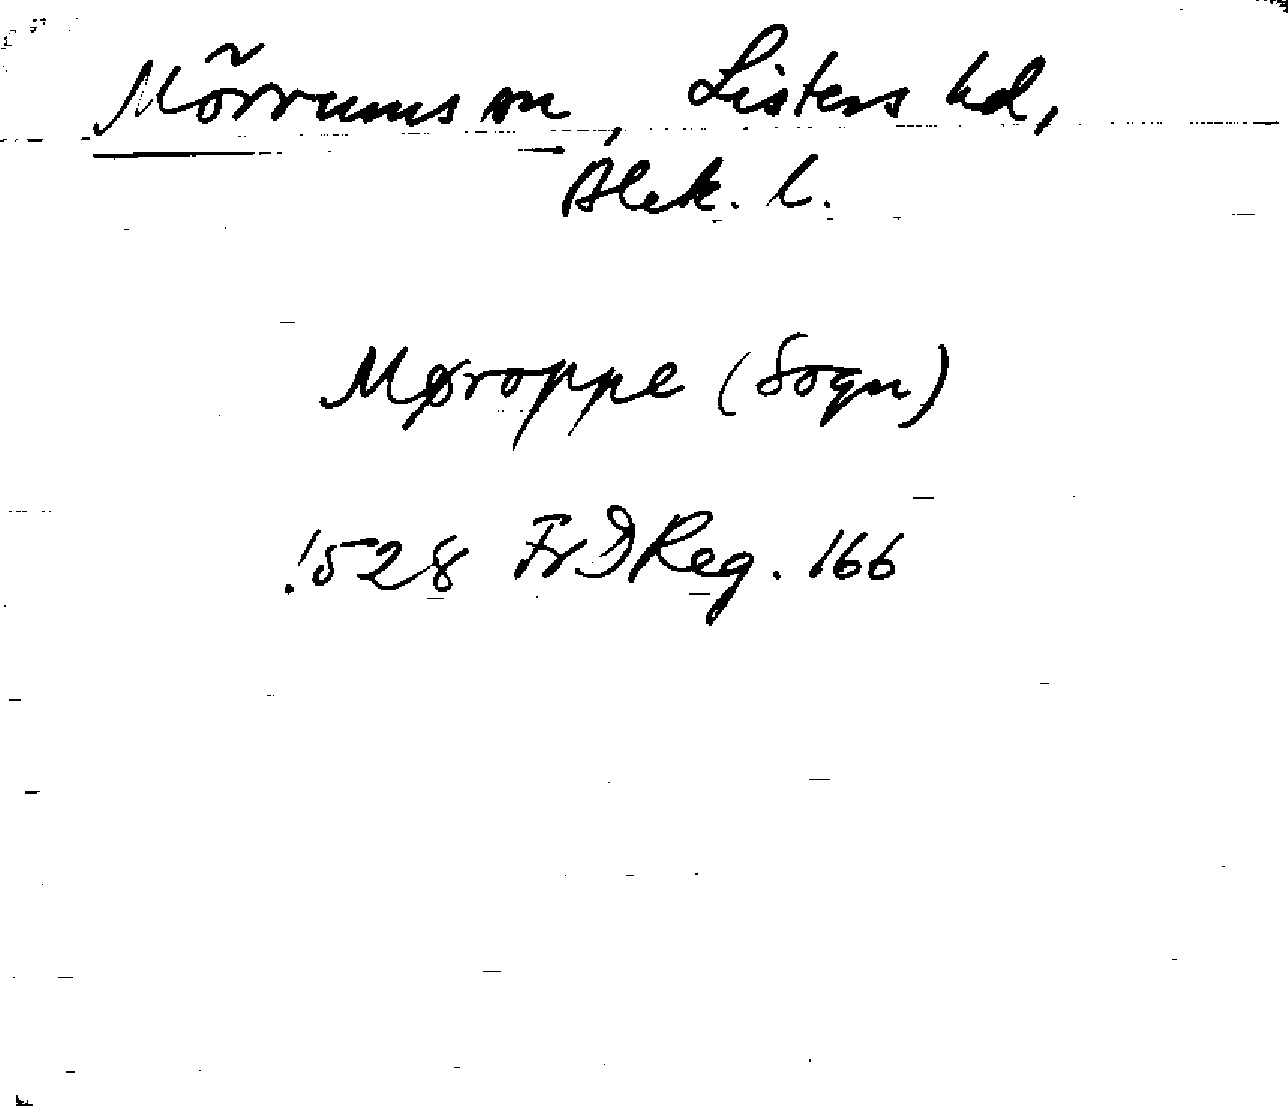 Mörrums sn, Listers hd,
Blek. l.
Møroppe (Sogn)
1528 FrDReg. 166